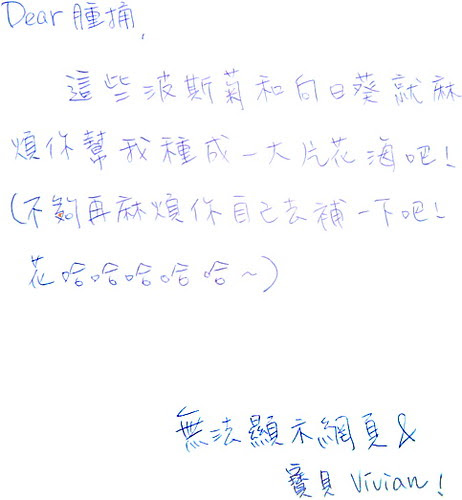 Dear 腫捅,
這些波斯菊和向日葵就麻
煩你幫我種成一大片花海吧!
(不夠再麻煩你自己去補一下吧!
花哈哈哈哈哈~)
無法顯示網頁&
寶貝 Vivian!